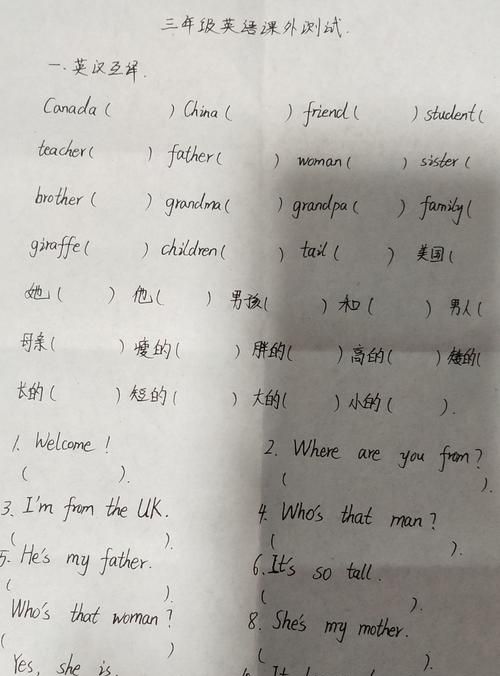 三年级英语课外测试.
一.英汉互译.
Canada (      ) China (      ) friend (      ) student (
teacher (      ) father (      ) woman (      ) sister (
brother (      ) grandma (      ) grandpa (      ) family (
giraffe (      ) children (      ) tail (      ) 美国 (
她 (      ) 他 (      ) 男孩 (      ) 和 (      ) 男人 (
母亲 (      ) 瘦的 (      ) 胖的 (      ) 高的 (      ) 矮的 (
长的 (      ) 短的 (      ) 大的 (      ) 小的 (      ).
1. Welcome! 2. Where are you from?
(      ). (
3. I'm from the UK. 4. Who's that man?
(      ). (      ).
5. He's my father. 6. It's so tall.
(      ). (      ).
Who's that woman? 8. She's my mother.
(      ) (
Yes, she is.